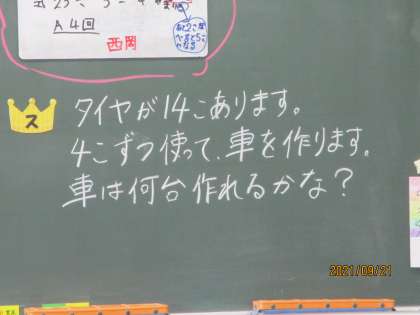 A 4回
西岡
ス
タイヤが14こあります。
4こずつ使って、車を作ります。
車は何台作れるかな?
2021/09/21